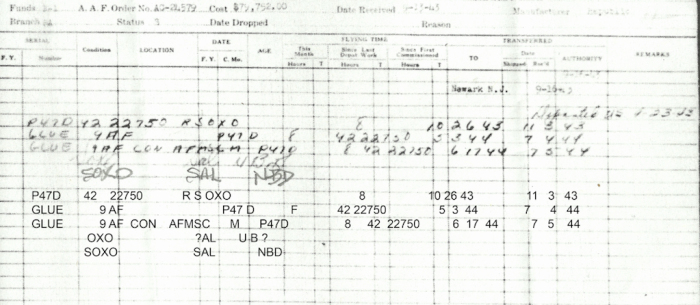 Funds A. A. F. Order No. AC-28579 Cost $79,752.00 Date Received 9-15-43 Manufacturer
Branch Status 3 Date Dropped Reason
SERIAL DATE FLYING TIME TRANSFERRED
F. Y. Number Condition LOCATION F. Y. C. Mo. AGE This Month Since Last Depot Work Since First Commissioned TO Date AUTHORITY REMARKS
Hours T Hours T Hours T Rec'd
Newark N.J.
Departed US
P47D 42 22750 R S OXO 8 10 26 43 11 3 43
GLUE 9AF P47 D F 42 22750 5 3 44 7 4 44
GLUE 9AF CON AFMSC M P47D 8 42 22750 6 17 44 7 5 44
SOXO SAL NBD
P47D 42 22750 R S OXO 8 10 26 43 11 3 43
GLUE 9 AF P47 D F 42 22750 5 3 44 7 4 44
GLUE 9 AF CON AFMSC M P47D 8 42 22750 6 17 44 7 5 44
OXO ?AL U-B ?
SOXO SAL NBD